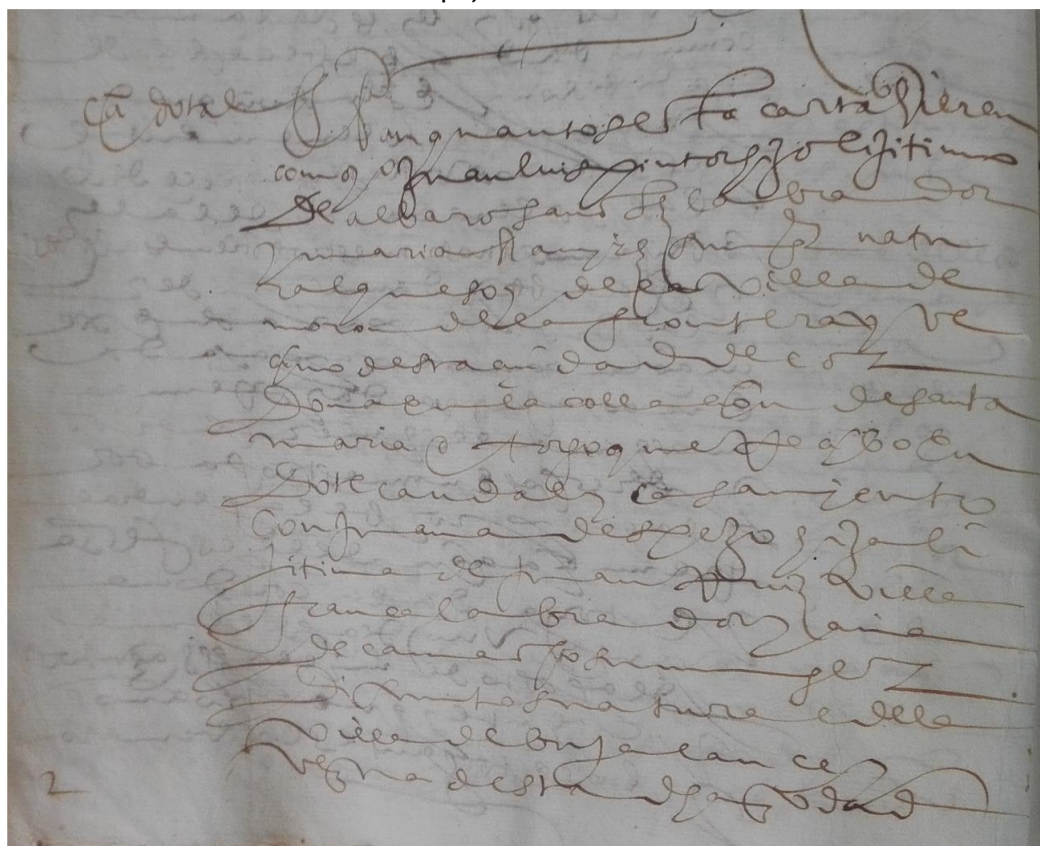 cta dotal Sepan quantos esta carta vieren
como yo Juan luis pintor hijo lijitimo
de albaro sans labrador
y maria su muger natu
ral que soy de la villa de
moron de la frontera y ve
zino desta ciudad de cor
dova en la collacion de santa
maria otorgo que rrecibo en
dote caudal y casamiento
con Juana despejo hija li
jitima de Juan rruiz villa
franca labrador y ana
de cañas su muger
difuntos natural de la
villa de bujalance y
vezina desta dha ciudad
2